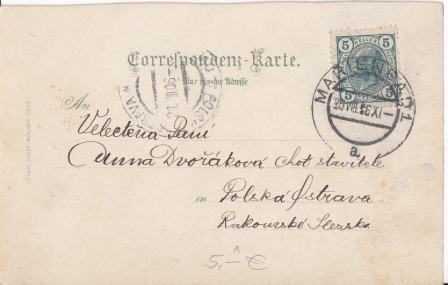 Correspondenz-Karte.
Nur für die Adresse
5 HELLER 5
5 5
MARIENBAD 1
a
An
Velectěná Paní
Anna Dvořáková choť stavitele
in Polská Ostrava
Rakouzské Slezsko
5,- €